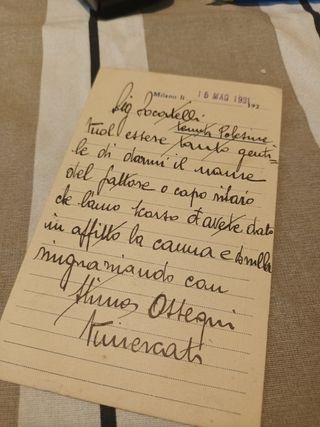 Milano li 16 MAG 1931 193
Sig Locatelli
tenuta Polesine
Vuol essere tanto genti=
le di darmi il nome
del fattore o capo
che l'anno scorso avete dato
in affitto la canna e
ringraziando con
stima Ossequi